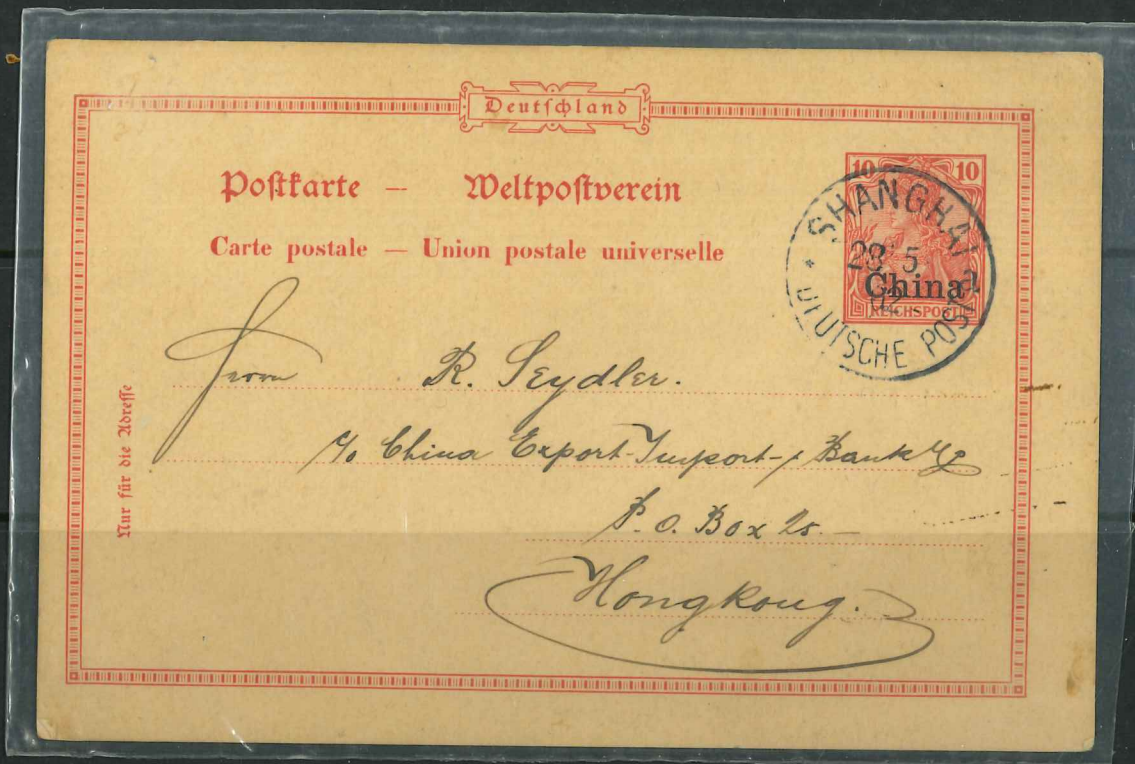 Deutschland
Postkarte — Weltpostverein
Carte postale — Union postale universelle
10 10
China
REICHSPOST
SHANGHAI
28 5
02
* DEUTSCHE POST
Nur für die Adresse
Herrn R. Seydler.
c/o China Export-Import- & Bank Co
P. O. Box 25.—
Hongkong.